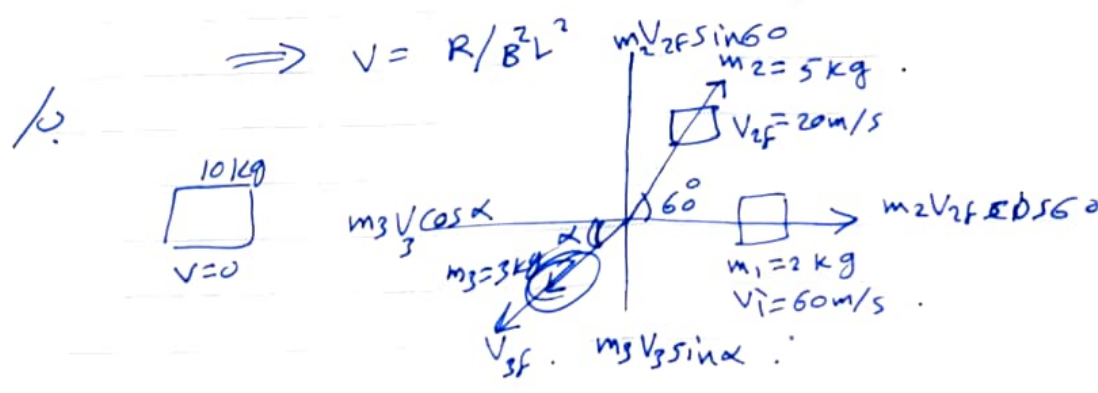 ⇒ V = R/B²L²
m₂V₂f sin60
m₂ = 5kg .
10.
V₂f = 20m/s
10kg
60°
m₂V₂f cos60
m₃V₃ cosα
α
V=0
m₃=3kg
m₁=2kg
V₁=60m/s .
V₃f .
m₃V₃ sinα